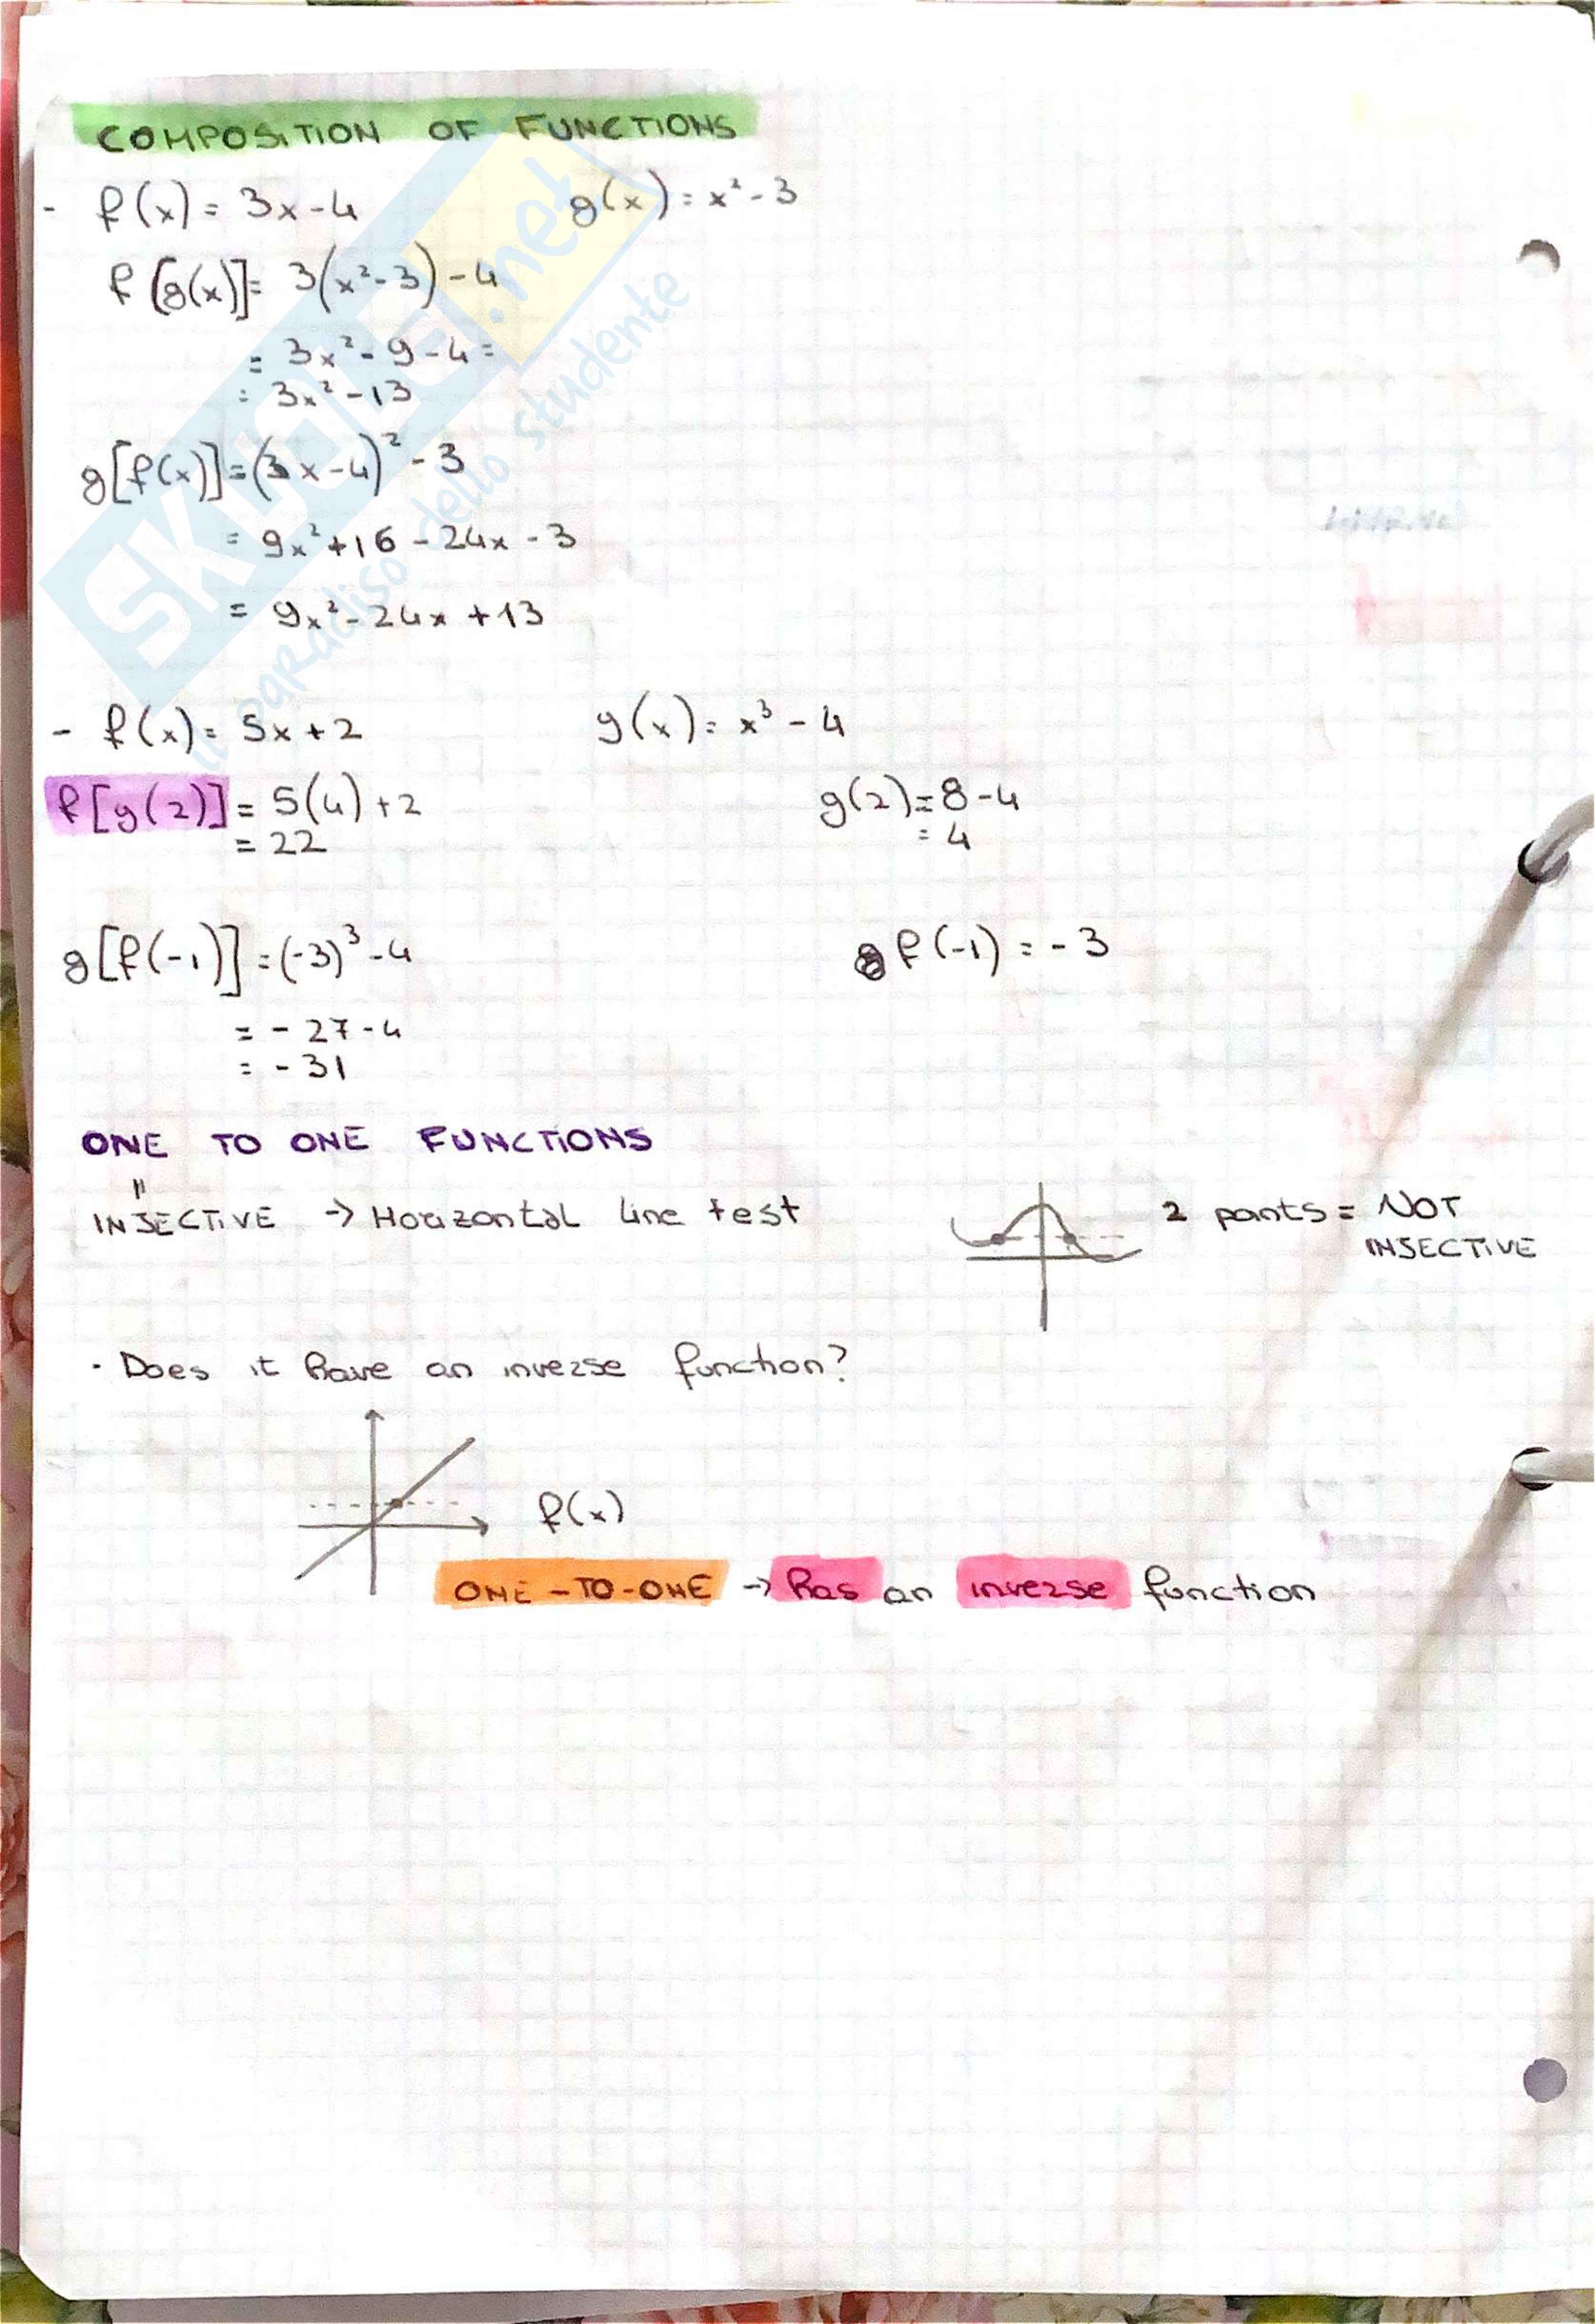 COMPOSITION OF FUNCTIONS
- f(x) = 3x-4 g(x) = x²-3
f[g(x)] = 3(x²-3)-4
= 3x²-9-4=
= 3x²-13
g[f(x)] = (3x-4)²-3
= 9x²+16-24x-3
= 9x²-24x+13
- f(x) = 5x+2 g(x) = x³-4
f[g(2)] = 5(4)+2 g(2) = 8-4
= 22 = 4
g[f(-1)] = (-3)³-4 f(-1) = -3
= -27-4
= -31
ONE TO ONE FUNCTIONS
"
INJECTIVE → Horizontal line test 2 points = NOT
INJECTIVE
· Does it have an inverse function?
f(x)
ONE-TO-ONE → has an inverse function
SKUOLA.net
il paradiso dello studente